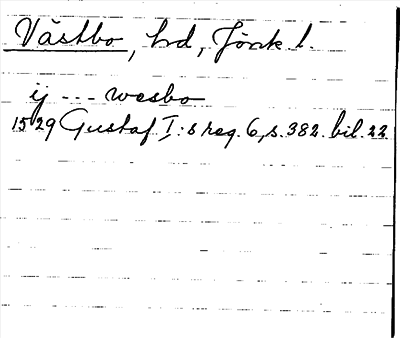 Västbo, hd, Jönk l.
ij --- wesbo
1529 Gustaf I:s reg. 6, s. 382. bil. 22